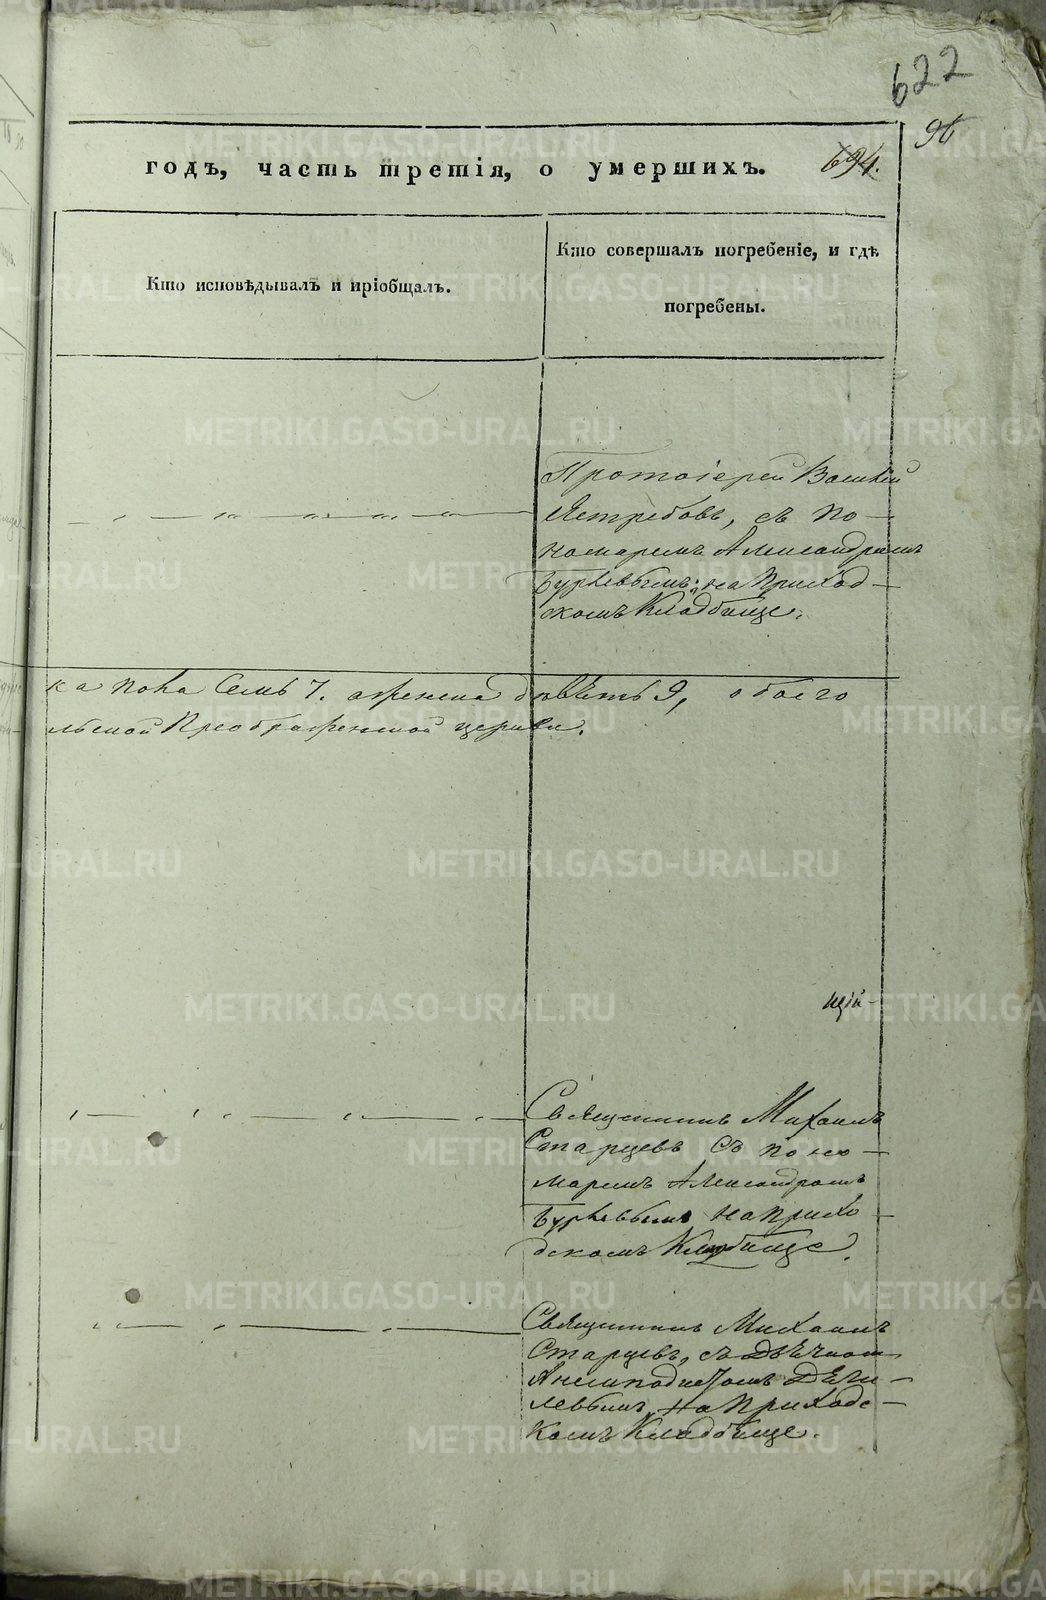 622
96
годъ, часть третія, о умершихъ. 694.
Кто исповѣдывалъ и пріобщалъ.
Кто совершалъ погребеніе, и гдѣ
погребены.
Протоіерей Василій
Ястребовъ, съ по-
номаремъ Александромъ
на приход-
скомъ Кладбище.
7. а женска девѣть 9, обоего
Преображенской церкви.
Священникъ Михаилъ
Старцевъ съ поно-
маремъ Александромъ
на прихо-
дскомъ Кладбище.
Священникъ Михаилъ
Старцевъ, съ Дьячкомъ
на Приходс-
комъ Кладбище.
METRIKI.GASO-URAL.RU